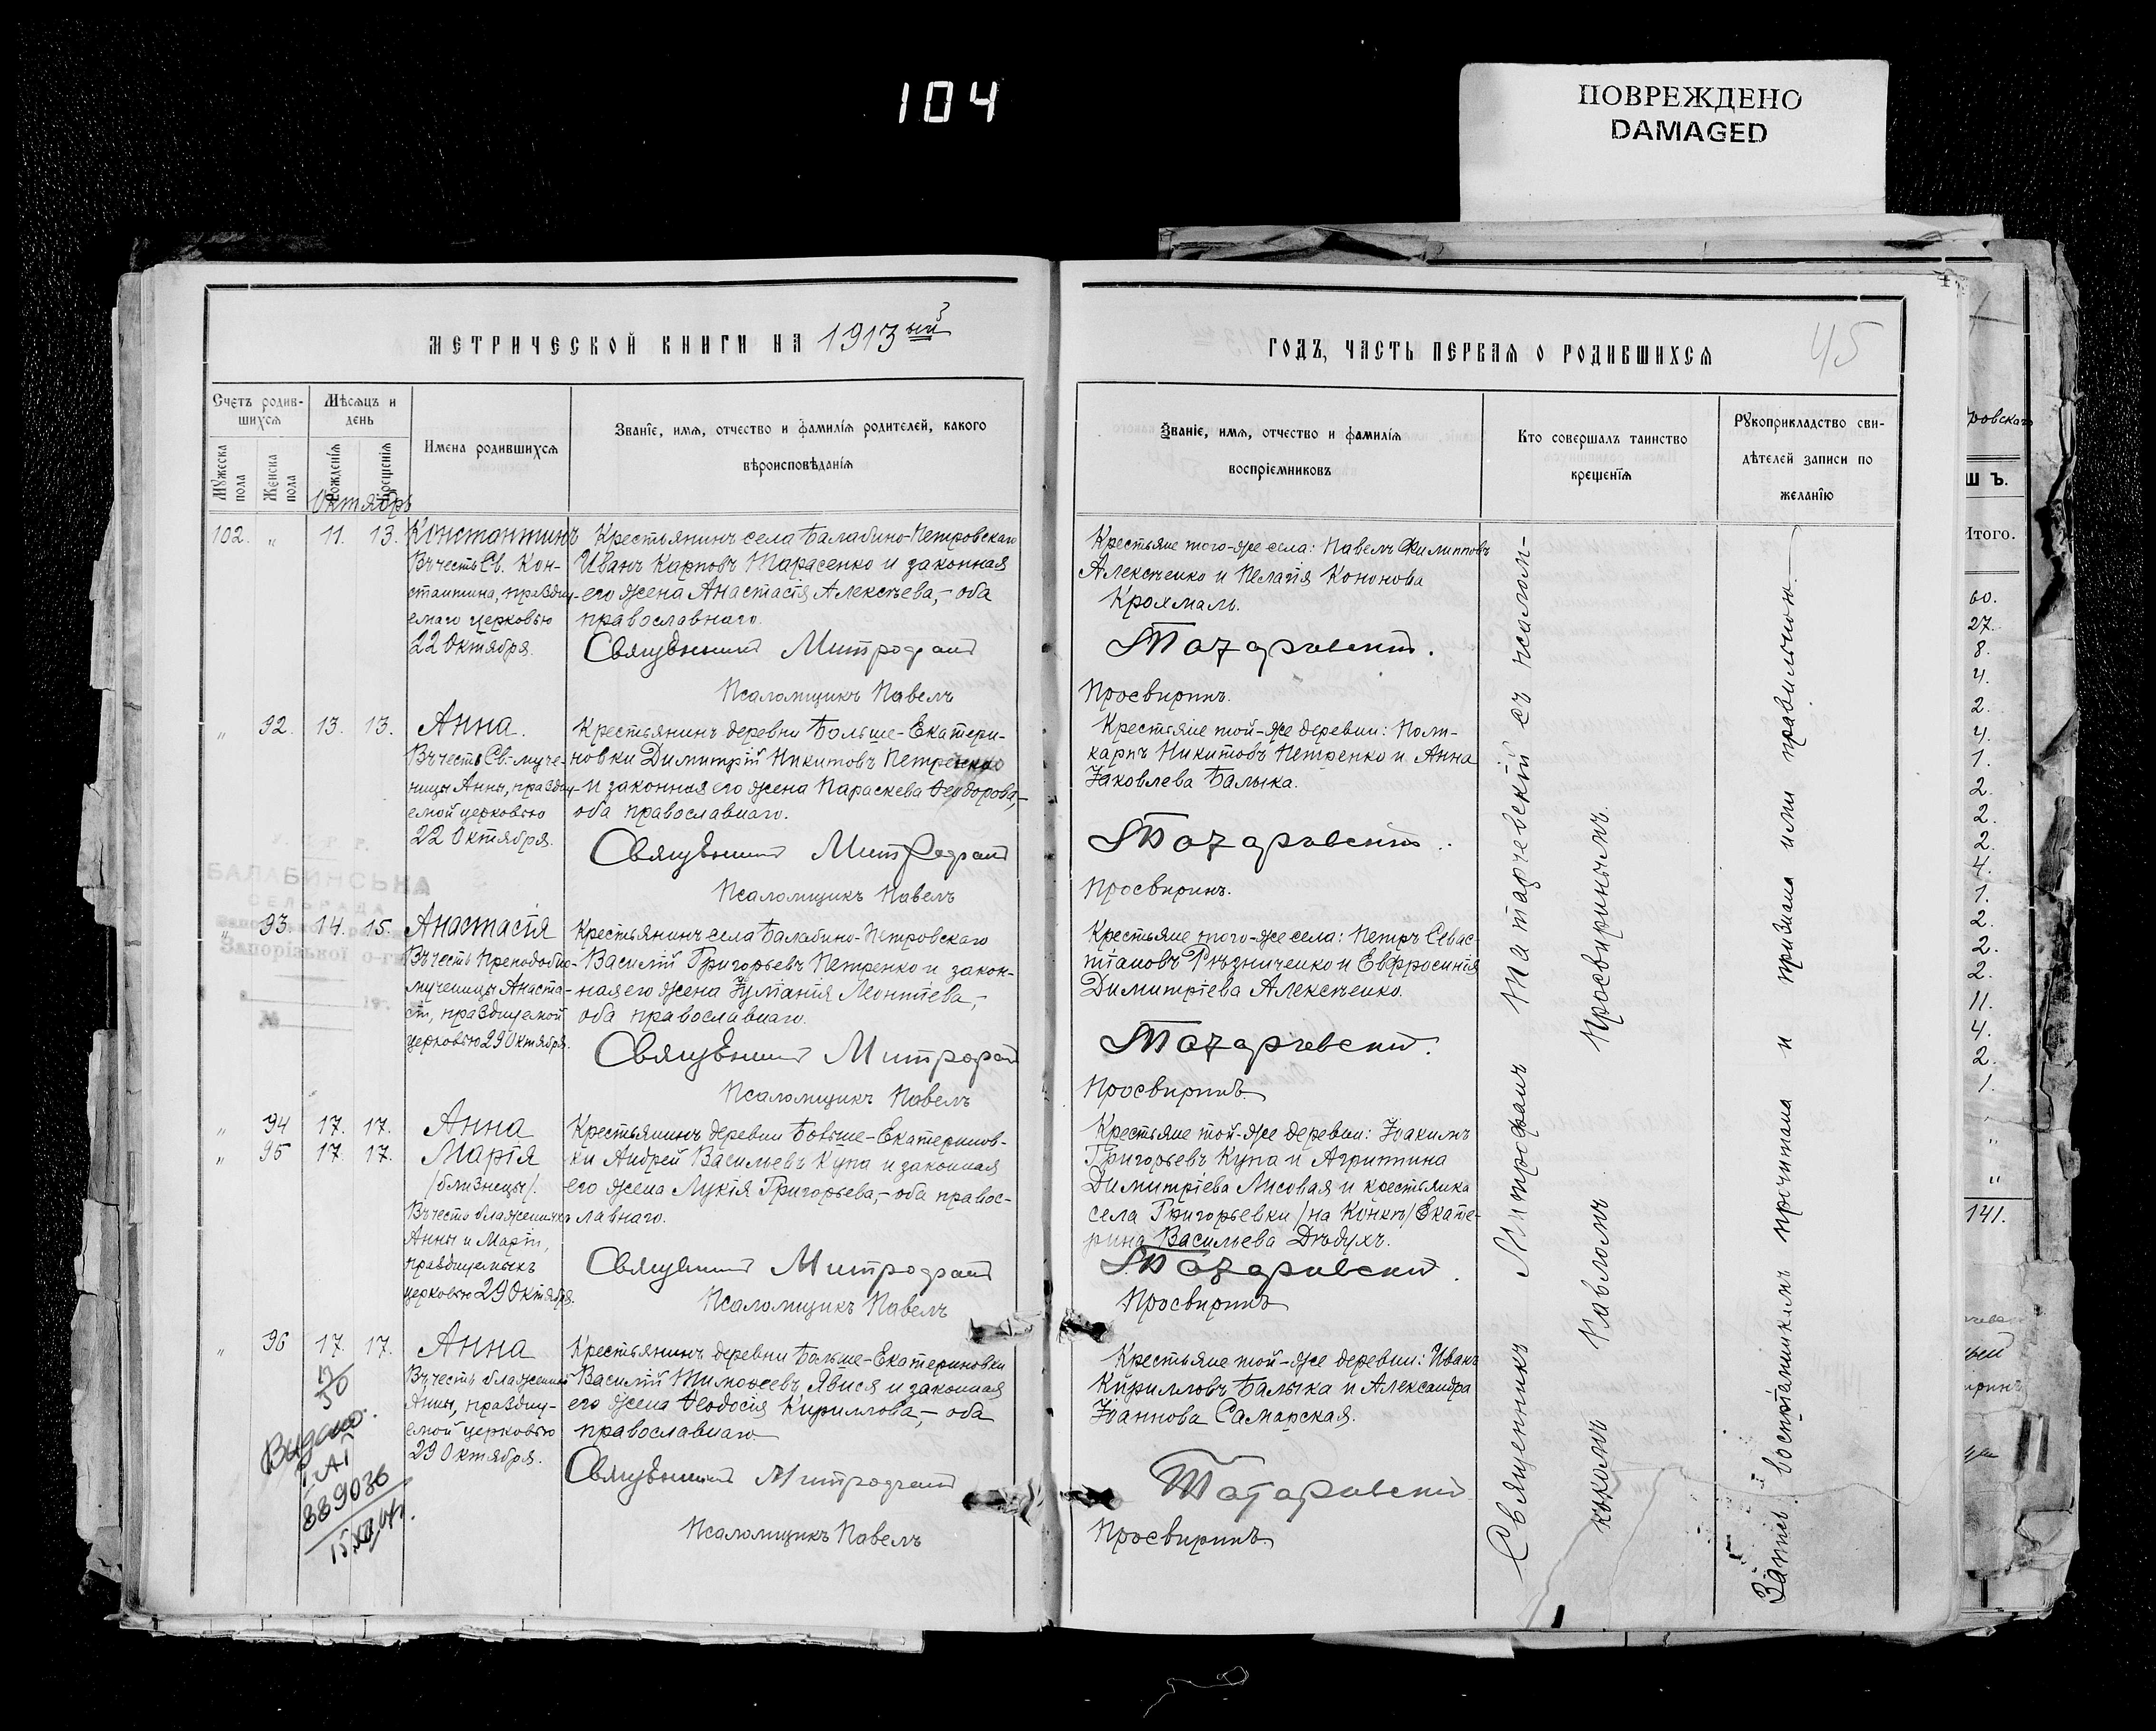 104
ПОВРЕЖДЕНО
DAMAGED
МЕТРИЧЕСКОЙ КНИГИ НА 1913 ый
Счетъ родив-
шихся
Мѣсяцъ и
день
Имена родившихся
Званіе, имя, отчество и фамилія родителей, какого
вѣроисповѣданія
Мужеска пола
Женска пола
Рожденія
Крещенія
Октябрь
102. " 11. 13. Константинъ Крестьянинъ села Балабино-Петровскаго
Въ честь Св. Кон- Иванъ Карповъ Тарасенко и законная
стантина, праздну- его жена Анастасія Алексѣева,- оба
емаго церковью православнаго.
22 Октября. Священникъ Митрофанъ
Псаломщикъ Павелъ
" 92. 13. 13. Анна. Крестьянинъ деревни Больше-Екатери-
Въ честь Св. муче- новки Димитрій Никитовъ Петренко
ницы Анны, праздну- и законная его жена Параскева Ѳеодорова,-
емой церковью оба православнаго.
22 Октября. Священникъ Митрофанъ
Псаломщикъ Павелъ
БАЛАБИНСЬКА
СЕЛЬРАДА
Запорізької о-ги
№
" 93 14. 15. Анастасія Крестьянинъ села Балабино-Петровскаго
Въ честь Преподобно- Василій Григорьевъ Петренко и закон-
мученицы Анаста- ная его жена Іуліанія Леонтіева,-
сіи, празднуемой оба православнаго.
церковью 29 Октября. Священникъ Митрофанъ
Псаломщикъ Павелъ
" 94 17. 17. Анна Крестьянинъ деревни Больше-Екатеринов-
" 95 17. 17. Марія ки Андрей Васильевъ Купа и законная
/близнецы/. его жена Лукія Григорьева,- оба правос-
Въ честь блаженныхъ лавнаго.
Анны и Маріи,
празднуемыхъ Священникъ Митрофанъ
церковью 29 Октября. Псаломщикъ Павелъ
" 96 17. 17. Анна Крестьянинъ деревни Больше-Екатериновки
Въ честь блаженной Василій Тимоѳеевъ Явися и законная
Анны, праздну- его жена Ѳеодосія Кириллова,- оба
емой церковью православнаго.
29 Октября. Священникъ Митрофанъ
Псаломщикъ Павелъ
Видано.
889036
ГОДЪ, ЧАСТЬ ПЕРВАЯ О РОДИВШИХСЯ
45
Званіе, имя, отчество и фамилія
воспріемниковъ
Кто совершалъ таинство
крещенія
Рукоприкладство сви-
дѣтелей записи по
желанію
Крестьяне того-же села: Павелъ Филипповъ
Алексѣенко и Пелагія Кононова
Крохмаль.
Татарчевскій.
Просвиринъ.
Крестьяне той-же деревни: Поли-
карпъ Никитовъ Петренко и Анна
Іаковлева Балыка.
Татарчевскій.
Просвиринъ.
Крестьяне того-же села: Петръ Севас-
тіановъ Рѣзниченко и Евфросинія
Димитріева Алексѣенко.
Татарчевскій.
Просвиринъ.
Крестьяне той-же деревни: Іоакимъ
Григорьевъ Купа и Агриппина
Димитріева Лисовая и крестьянка
села Григорьевки /на Конкѣ/ Екате-
рина Васильева Дѣдухъ.
Татарчевскій.
Просвиринъ
Крестьяне той-же деревни: Иванъ
Кирилловъ Балыка и Александра
Іоаннова Самарская.
Татарчевскій
Просвиринъ.
Священникъ Митрофанъ Татарчевскій съ псалом-
щикомъ Павломъ Просвиринымъ.
Запись воспріемникамъ прочитана и признана ими правильною.
ровскаго
Ш Ъ.
Итого.
60.
27.
8.
4.
2.
4.
1.
2.
2.
2.
4.
1.
2.
2.
2.
11.
4.
2.
1.
"
"
141.